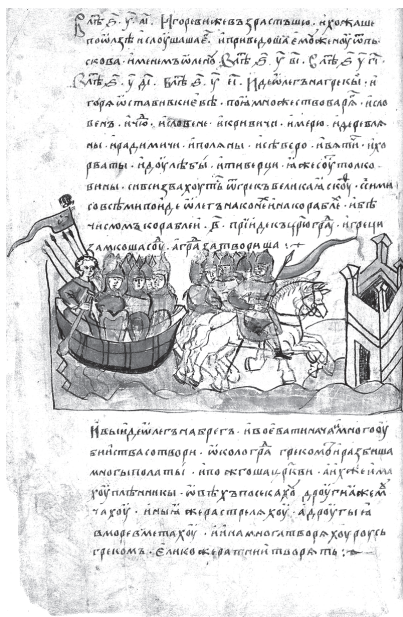 В лѣт҃ ҂s҃ у҃ аі҃ . Игореви же възрастъшю . и хожаше
по ѡлзѣ и слоушаше . и приведоша ему женоу ѿ пь
скова . именьмь ѡлгоу В лѣт҃ ҂s҃ у҃ ві҃ . В лѣт҃ ҂s҃ у҃ гі҃ .
В лѣт҃ ҂s҃ у҃ ді҃ . В лѣт҃ ҂s҃ у҃ еі҃ . Иде ѡлегъ на грекы . и
горѧ ѡстави в киевѣ . поѧ множество варѧ . и сло
венъ . и чюдь . и словене . и кривичи . и мерю . и деревлѧ
ны . и радимичи . и полѧны . и сѣверо . и вѧтичи . и хо
рваты . и доулѣбы . и тиверци . ꙗже соуть толко
вины . си вси звахоуть ѿ грекъ великаѧ скоуѳ . сими
со всѣми поиде ѡлегъ на конехъ и на кораблех . и бѣ
числомъ кораблеи . в҃ . прииде къ цр҃югра . и греци
замкоша соу . а гра затвориша :
И выиде ѡлегъ на брегъ . и воевати нача . и много оу
биства створи . ѡколо гра грекомъ . и разбиша
многы полаты . и пожгоша цр҃кви . а ихже има
хоу плѣнникы . ѡвѣхъ посѣкахоу дроугиа же моу
чахоу . иныꙗ же растрелѧхоу . а дроугыꙗ
в море вметахоу . и ина многа творѧхоу роусь
грекомъ . елико же ратнии творѧть :